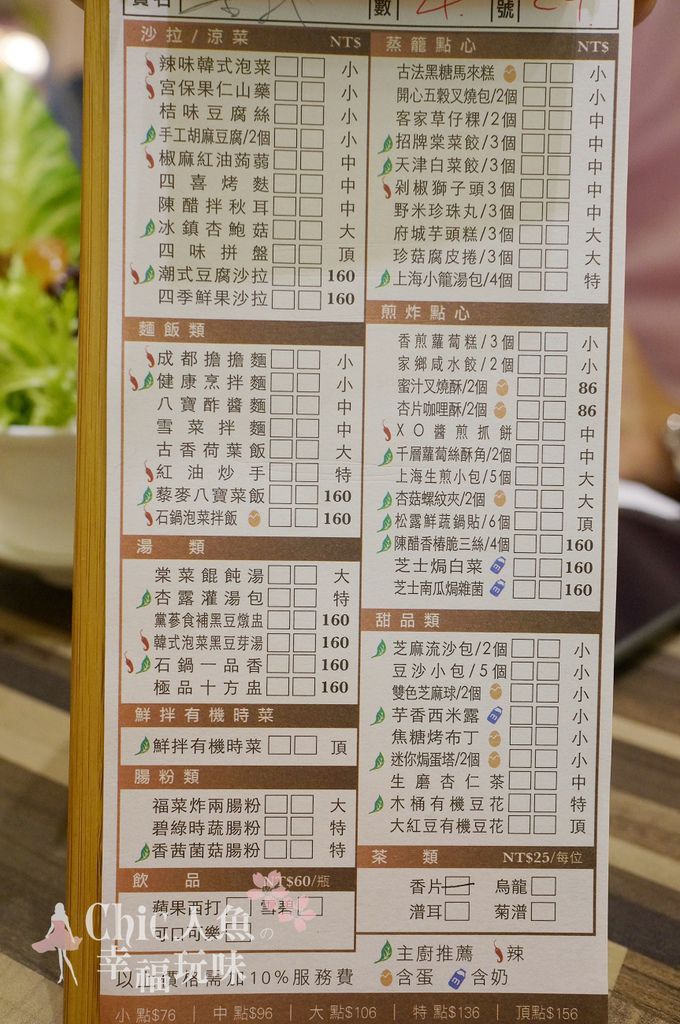 數 號
沙拉/涼菜 NT$
辣味韓式泡菜 小
宮保果仁山藥 小
桔味豆腐絲 小
手工胡麻豆腐/2個 小
椒麻紅油蒟蒻 中
四喜烤麩 中
陳醋拌秋耳 中
冰鎮杏鮑菇 大
四味拼盤 頂
潮式豆腐沙拉 160
四季鮮果沙拉 160
麵飯類
成都擔擔麵 小
健康烹拌麵 小
八寶酢醬麵 中
雪菜拌麵 中
古香荷葉飯 大
紅油炒手 特
藜麥八寶菜飯 160
石鍋泡菜拌飯 160
湯類
棠菜餛飩湯 大
杏露灌湯包 特
黨蔘食補黑豆燉盅 160
韓式泡菜黑豆芽湯 160
石鍋一品香 160
極品十方盅 160
鮮拌有機時菜
鮮拌有機時菜 頂
腸粉類
福菜炸兩腸粉 大
碧綠時蔬腸粉 特
香茜菌菇腸粉 特
飲品 NT$60/瓶
蘋果西打 雪碧
可口可樂
蒸籠點心 NT$
古法黑糖馬來糕 小
開心五穀叉燒包/2個 小
客家草仔粿/2個 中
招牌棠菜餃/3個 中
天津白菜餃/3個 中
剁椒獅子頭3個 中
野米珍珠丸/3個 中
府城芋頭糕/3個 大
珍菇腐皮捲/3個 大
上海小籠湯包/4個 特
煎炸點心
香煎蘿蔔糕/3個 小
家鄉咸水餃/2個 小
蜜汁叉燒酥/2個 86
杏片咖哩酥/2個 86
XO醬煎抓餅 中
千層蘿蔔絲酥角/2個 中
上海生煎小包/5個 大
杏菇螺紋夾/2個 大
松露鮮蔬鍋貼/6個 頂
陳醋香椿脆三絲/4個 160
芝士焗白菜 160
芝士南瓜焗雜菌 160
甜品類
芝麻流沙包/2個 小
豆沙小包/5個 小
雙色芝麻球/2個 小
芋香西米露 小
焦糖烤布丁 小
迷你焗蛋塔/2個 小
生磨杏仁茶 中
木桶有機豆花 特
大紅豆有機豆花 頂
茶類 NT$25/每位
香片 烏龍
譜耳 菊譜
主廚推薦 辣
含蛋 含奶
以上價格需加10%服務費
小點$76 | 中點$96 | 大點$106 | 特點$136 | 頂點$156
Chic人魚の
幸福玩味